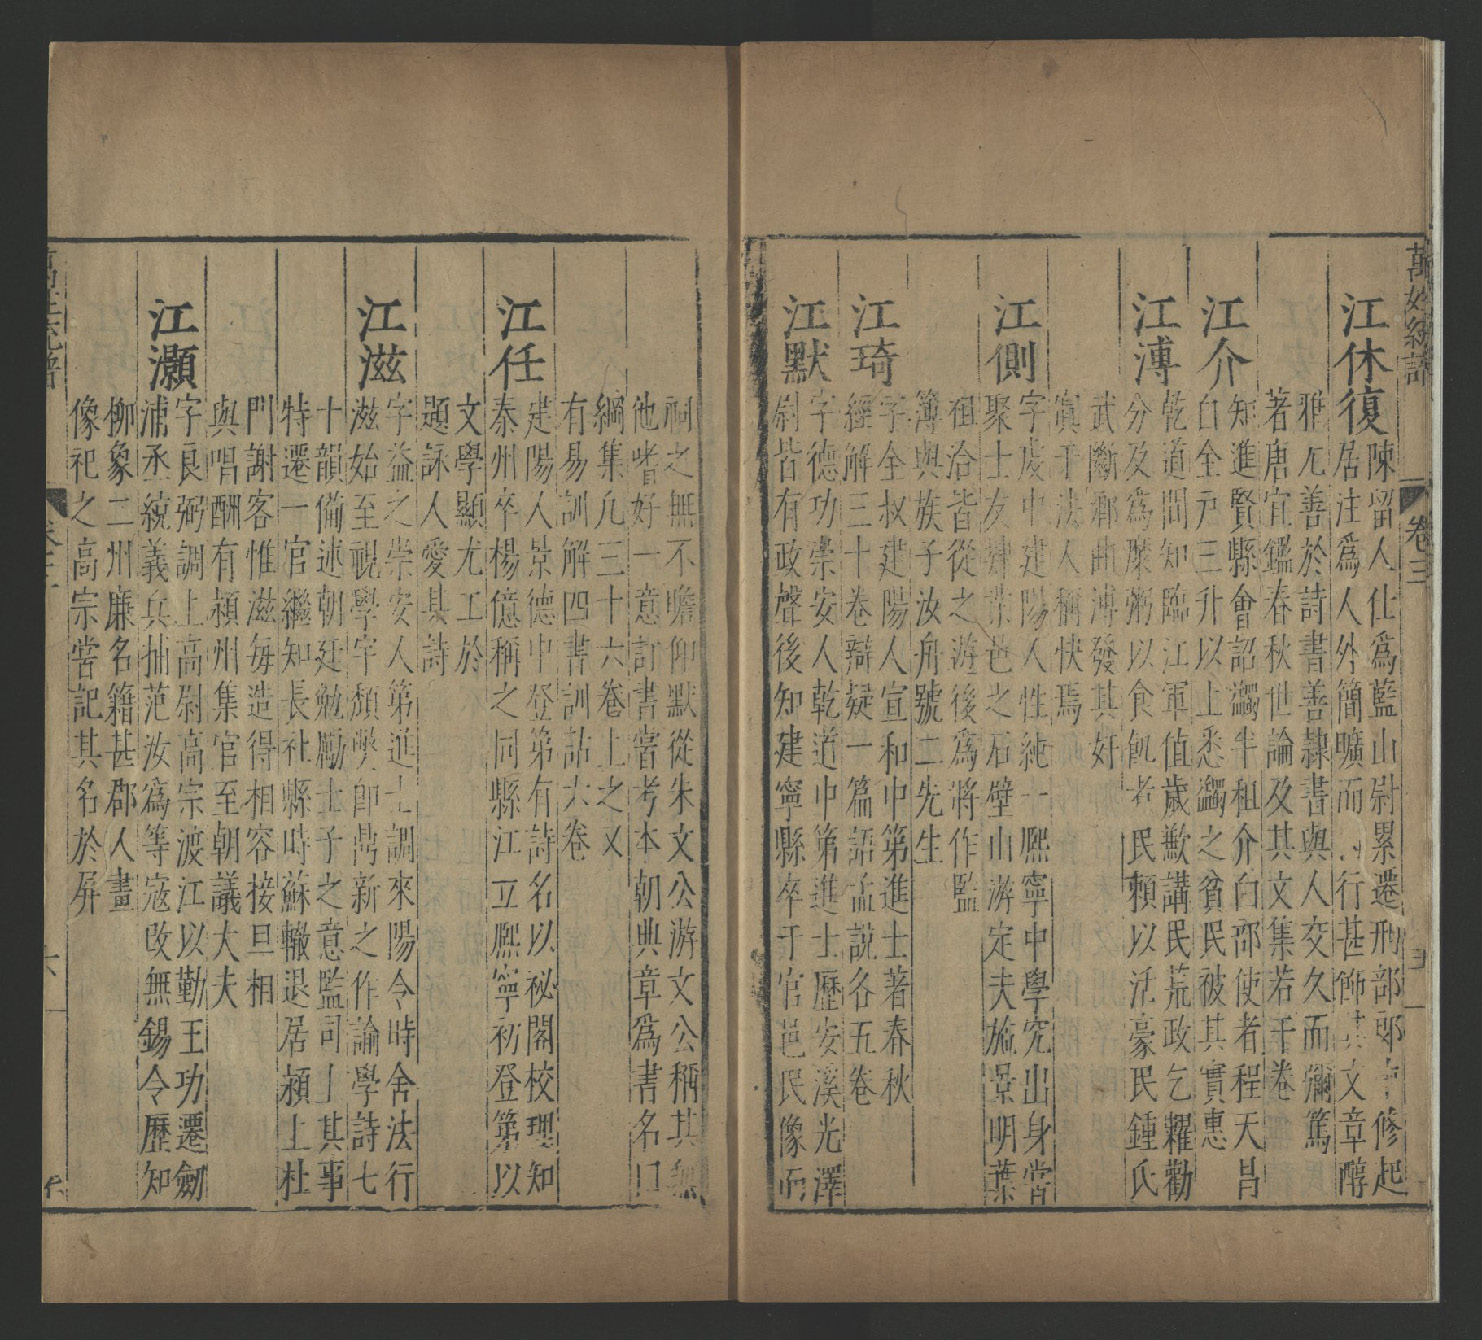 萬姓統譜 卷三
江休復
陳留人仕爲藍山尉累遷刑部郎中修起
居注爲人外簡曠而内行甚飾其文章醇
雅尤善於詩書善隸書與人交久而彌篤
著唐宜鑑春秋世論及其文集若干卷
江介
知進賢縣會詔蠲半租介白部使者程天昌
白全戸三升以上悉蠲之貧民被其實惠
江溥
乾道間知臨江軍值歲歉講民荒政乞糴勸
分及爲糜粥以食飢者民頼以活豪民鍾氏
武斷鄉曲溥發其奸
寘于法人稱快焉
江側
字處中建陽人性純一熈寧中學究出身嘗
聚士友肄業邑之石壁山游定夫施景明葉
祖洽皆從之游後爲將作監
簿與族子汝舟號二先生
江琦
字全叔建陽人宣和中第進士著春秋
經解三十卷辯疑一篇語孟說各五卷
江默
字德功崇安人乾道中第進士歷安溪光澤
尉皆有政聲後知建寧縣卒于官邑民像而
祠之無不瞻仰默從朱文公游文公稱其無
他嗜好一意訂書嘗考本朝典章爲書名曰
綱集凡三十六卷上之又
有易訓解四書訓詁六卷
江任
建陽人景德中登第有詩名以祕閣校理知
泰州卒楊億稱之同縣江立熈寧初登第以
文學顯尤工於
題詠人愛其詩
江滋
字益之崇安人第進士調來陽令時舍法行
滋始至視學宇頽獘即鳩新之作論學詩七
十韻備述朝廷勉勵士子之意監司上其事
特遷一官繼知長社縣時蘇轍退居潁上杜
門謝客惟滋毎造得相容接旦相
與唱酬有潁州集官至朝議大夫
江灝
字良弼調上高尉高宗渡江以勤王功遷劒
浦丞統義兵抽范汝爲等寇改無錫令歷知
柳象二州廉名籍甚郡人畫
像祀之高宗嘗記其名於屏